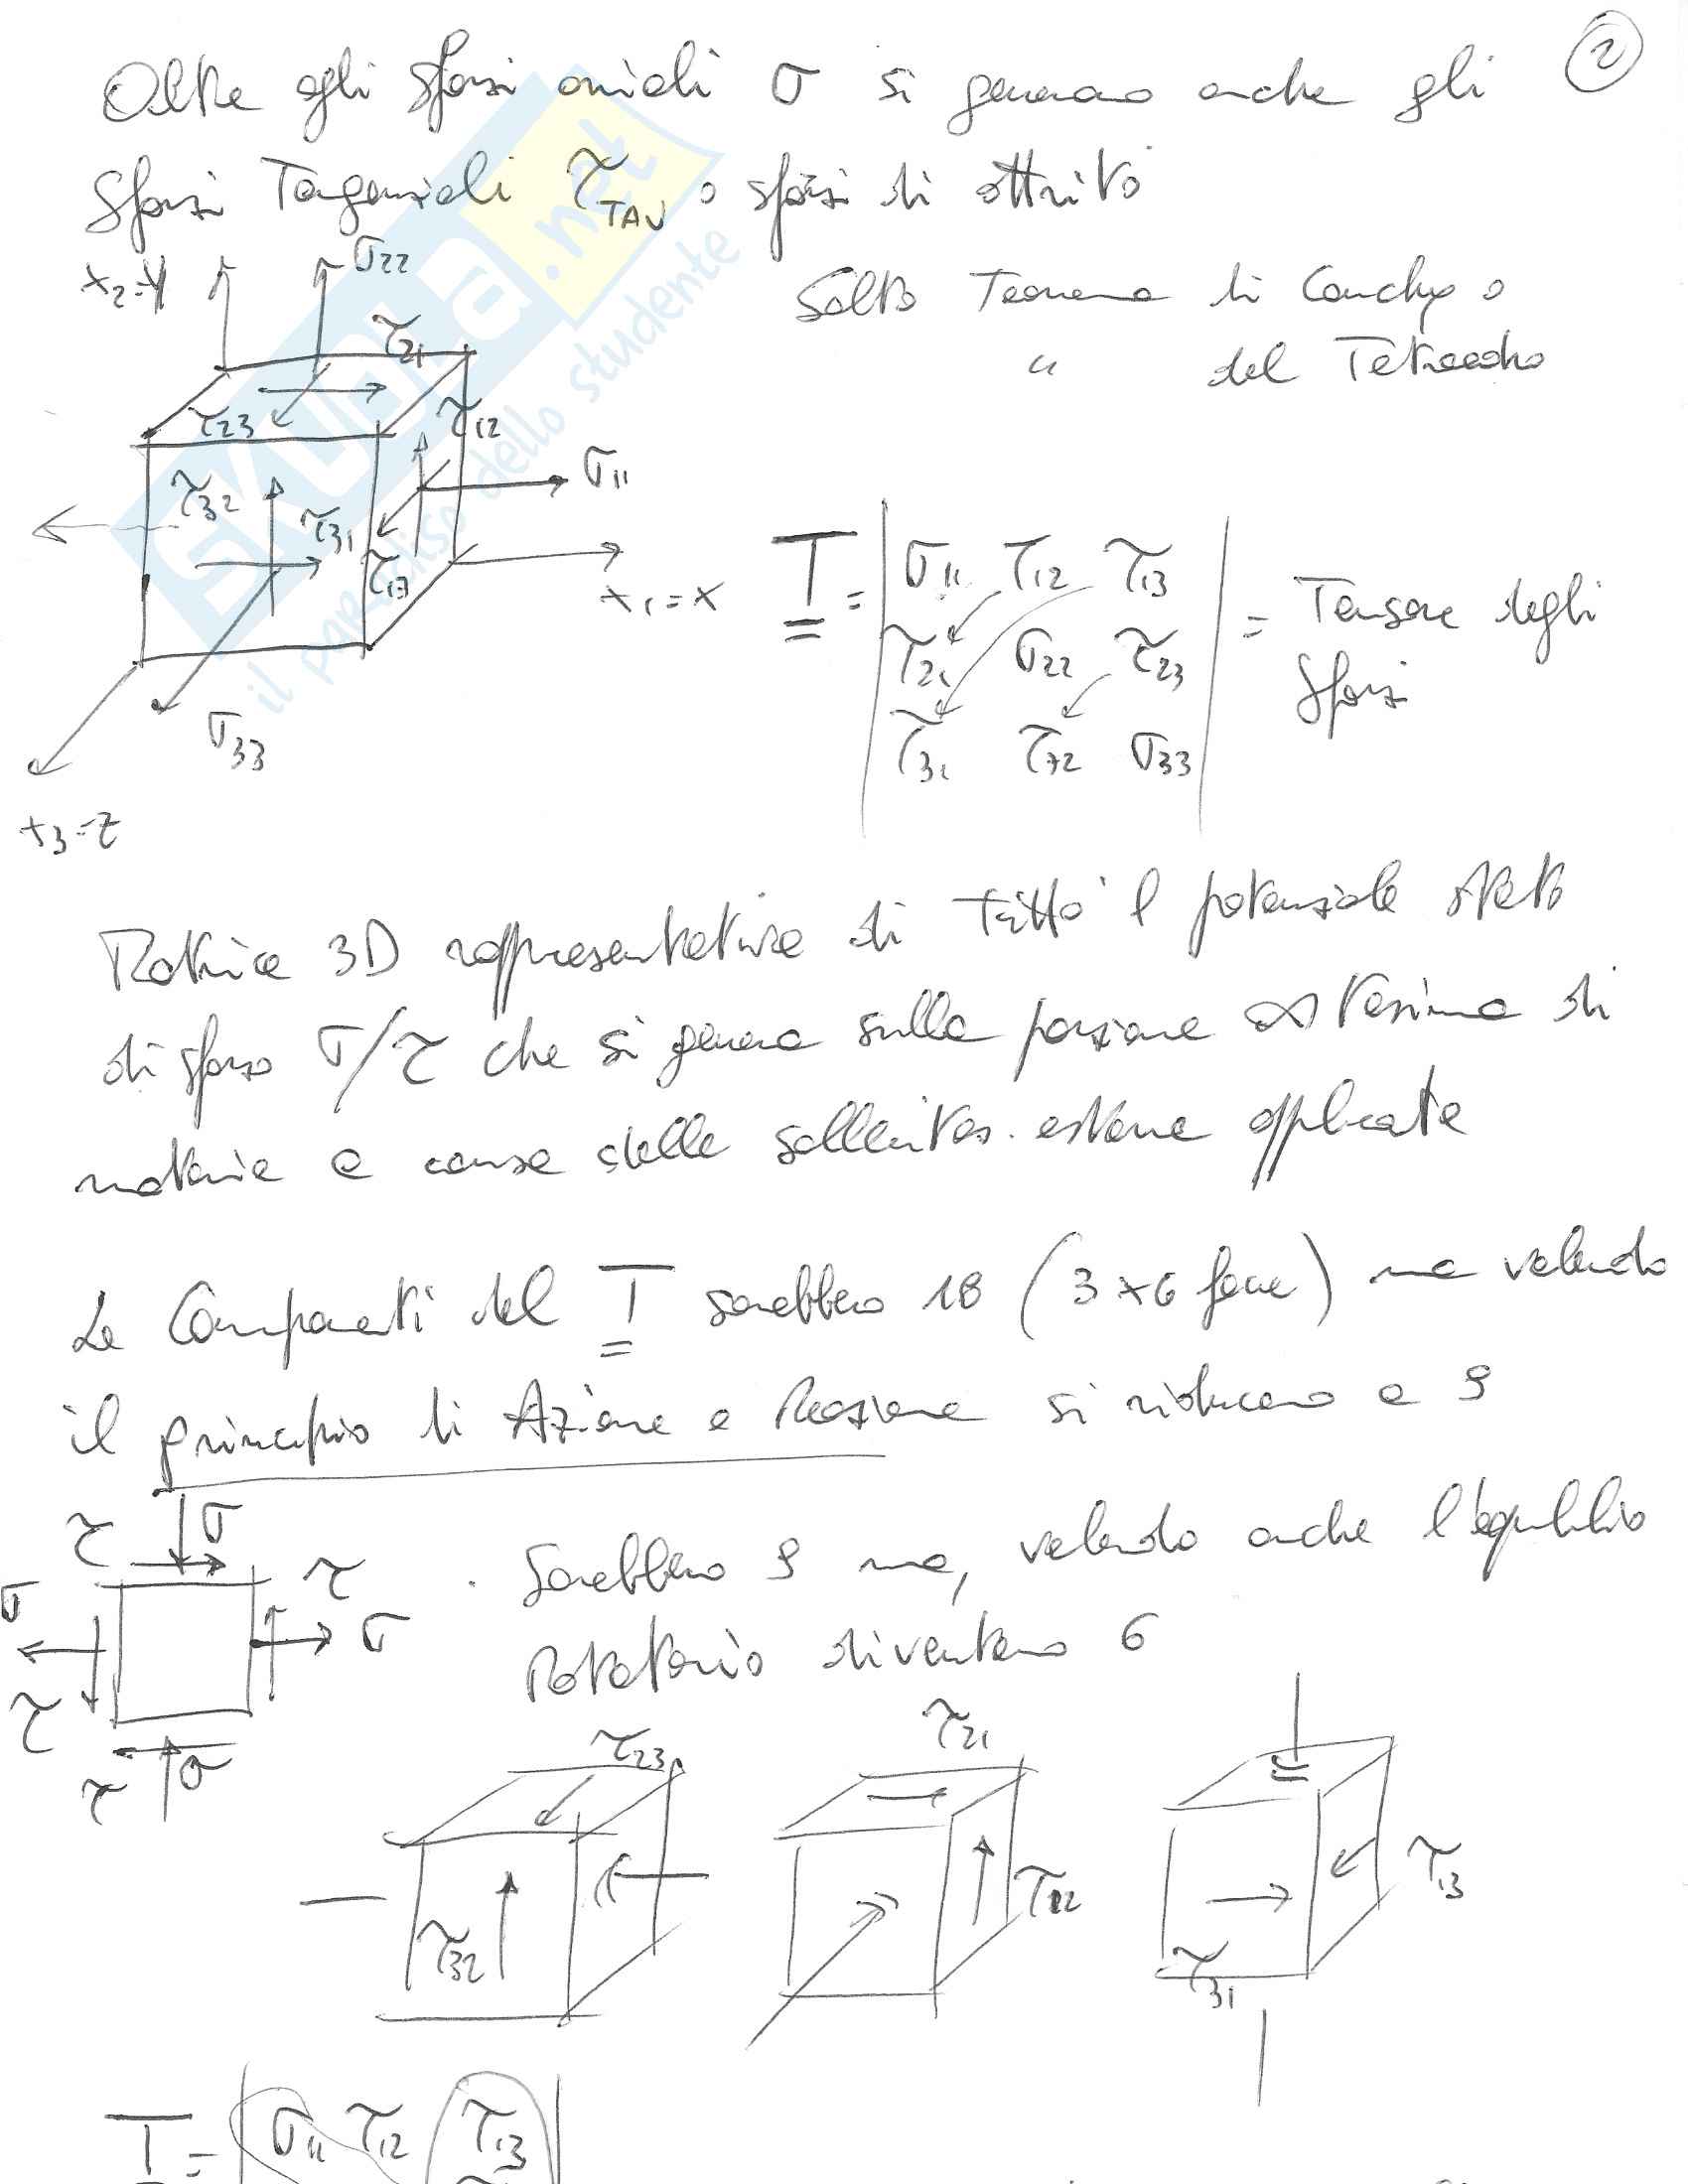 2
Oltre agli sforzi assiali σ si generano anche gli
sforzi Tangenziali τ TAU o sforzi di attrito
x2=y σ22
Salto Teorema di Cauchy o
τ21
" del Tetraedro
τ23 τ12
σ11
τ32
τ31
τ13
x1=x
T = | σ11 τ12 τ13 |
| τ21 σ22 τ23 | = Tensore degli
| τ31 τ32 σ33 | sforzi
σ33
x3=z
Matrice 3D rappresentativa di tutto il potenziale stato
di sforzo σ/τ che si genera sulla porzione ∞tesima di
materia a causa delle sollecitaz. esterne applicate
Le Componenti del T sarebbero 18 (3x6 facce) ma valendo
il principio di Azione e Reazione si riducono a 9
τ σ
σ τ
σ
τ
τ σ
. Sarebbero 9 ma, valendo anche l'equilibrio
Rotatorio diventano 6
τ23 τ21
τ32 τ12 τ13
τ31
T = | σ11 τ12 τ13 |
SKUOLA.net
il paradiso dello studente